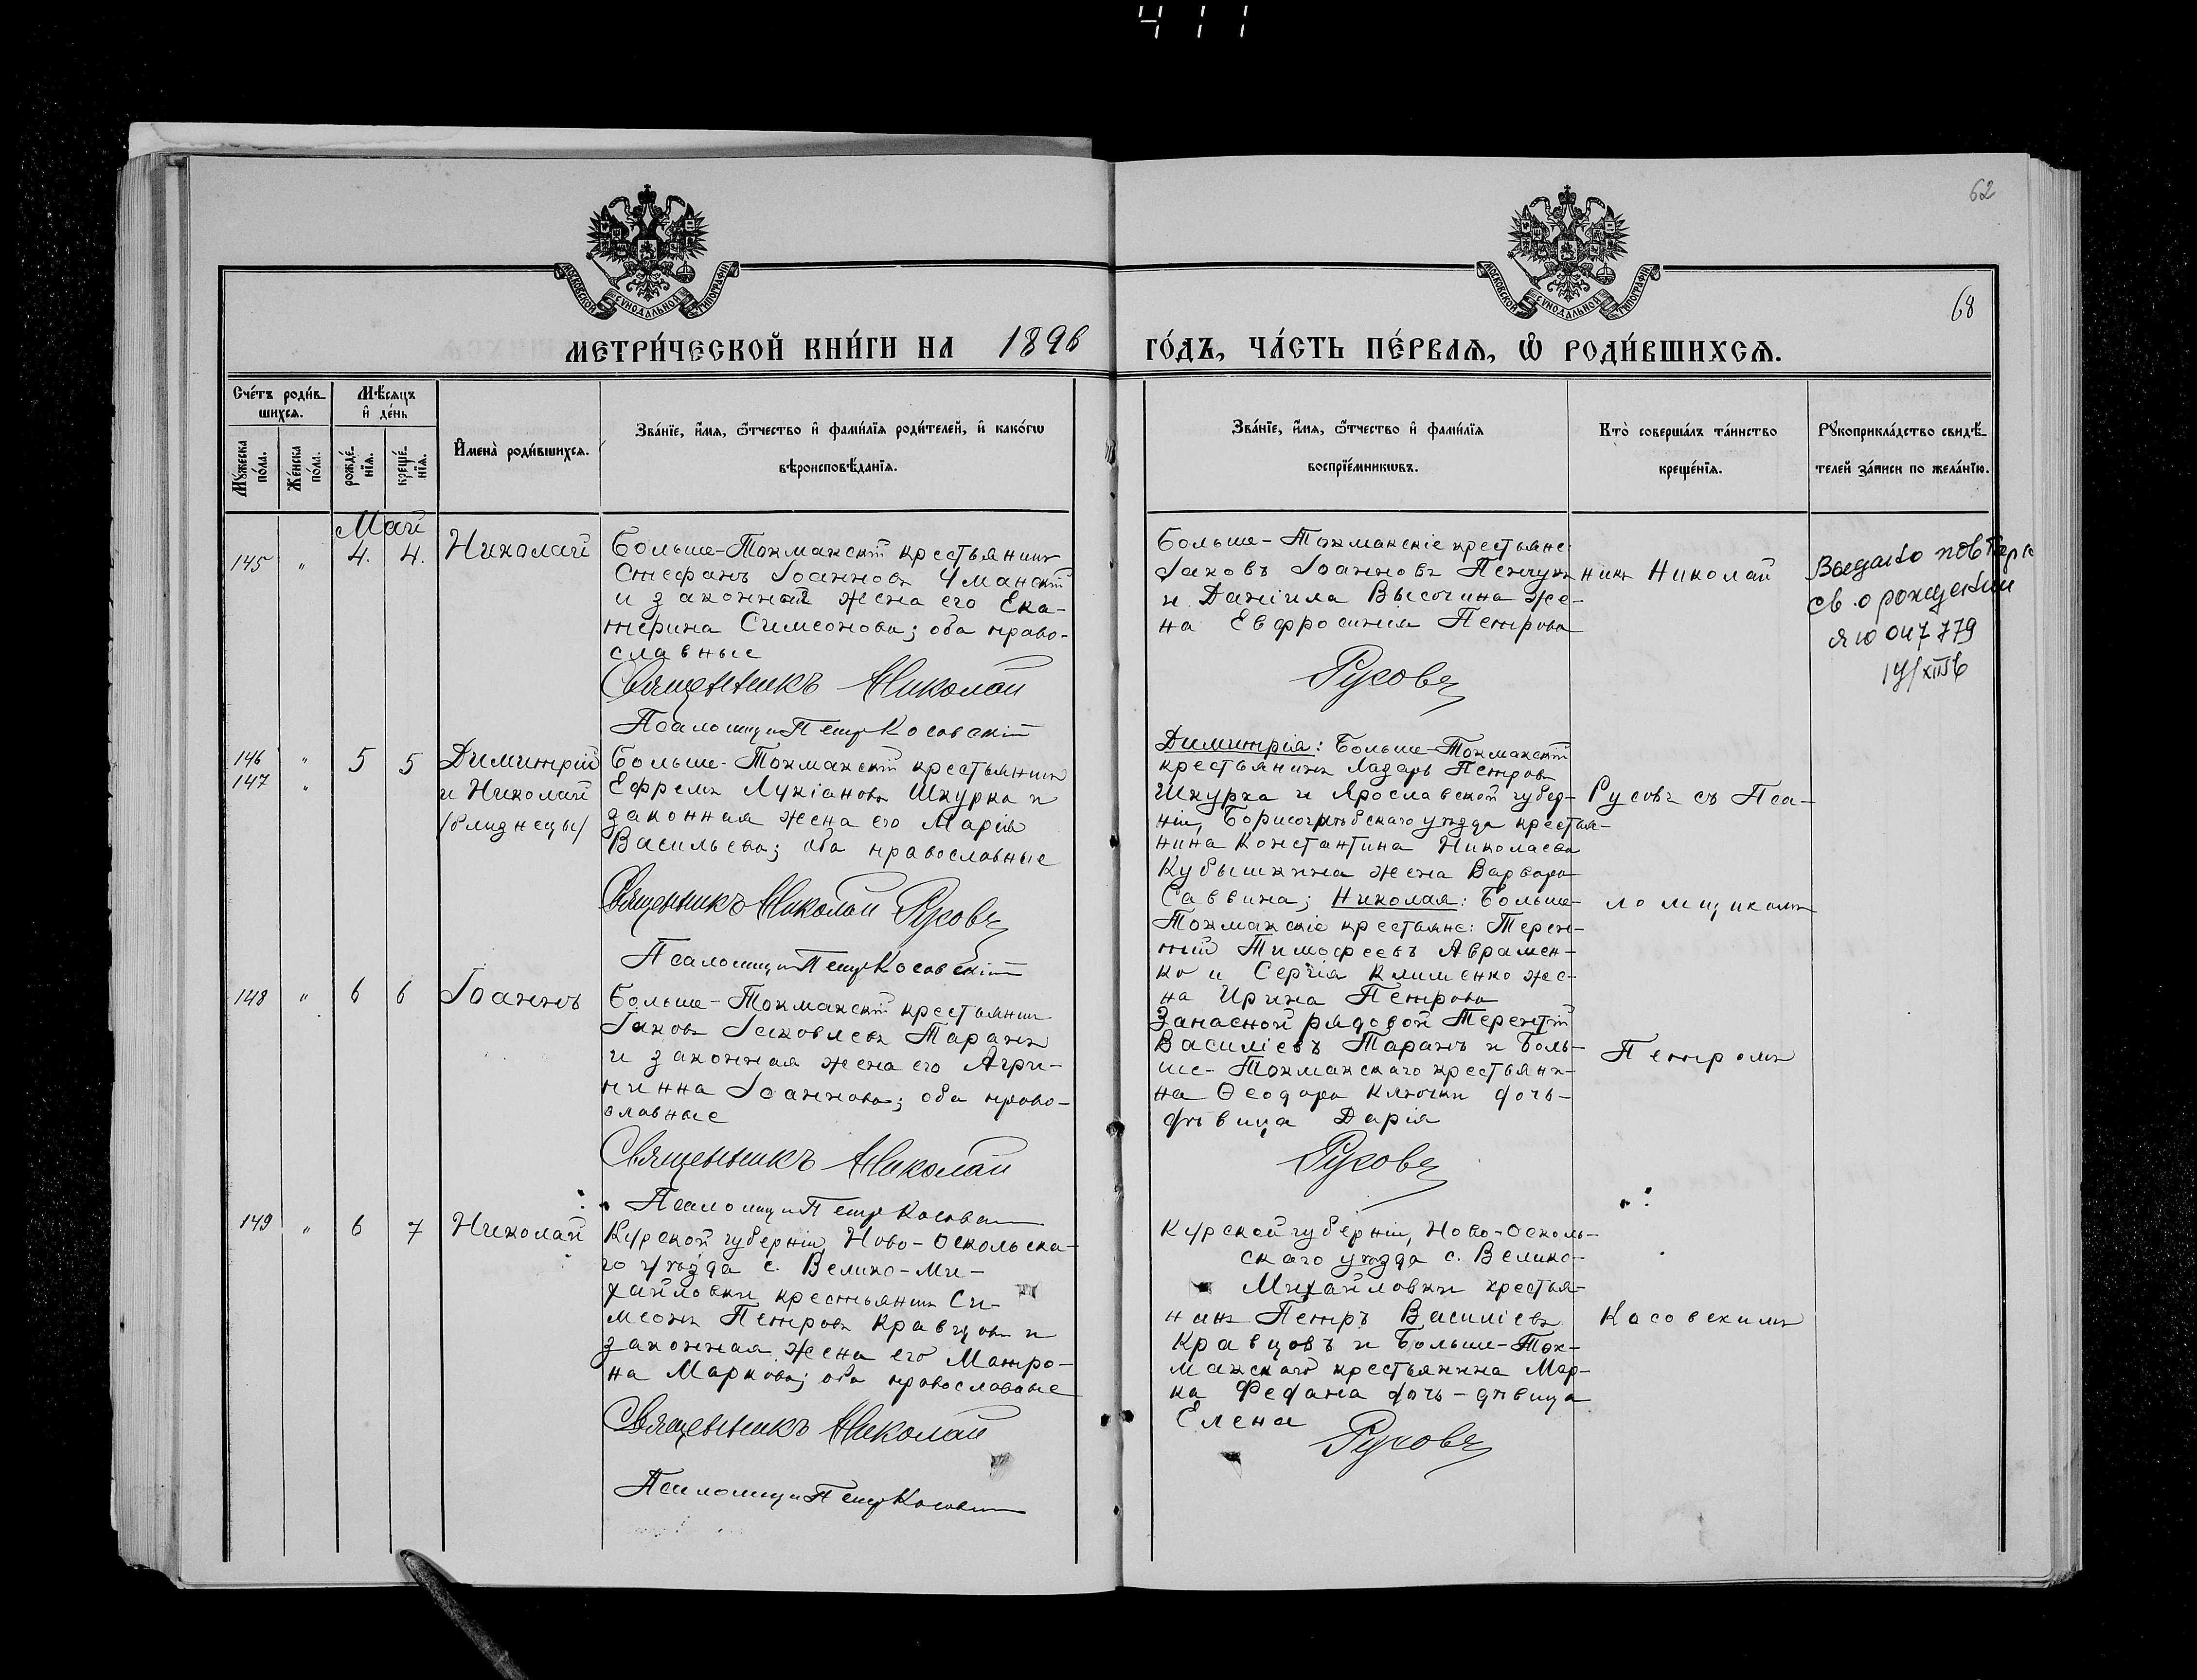 411
62
68
МОСКОВСКОЙ СѴНОДАЛЬНОЙ ТИПОГРАФІИ
МОСКОВСКОЙ СѴНОДАЛЬНОЙ ТИПОГРАФІИ
МЕТРИ́ЧЕСКОЙ КНИ́ГИ НА 1896
ГО́ДЪ, ЧА́СТЬ ПЕ́РВАѦ, Ѡ҆ РОДИ́ВШИХСѦ.
Сче́тъ роди́в-
шихсѧ.
Мꙋ́жеска по́ла.
Же́нска по́ла.
Мѣ́сяцъ
и҆ де́нь
рожде́-
нїѧ.
креще́-
нїѧ.
И҆мена̀ роди́вшихсѧ.
Зва́нїе, и҆́мѧ, ѻ҆́тчество и҆ фами́лїѧ роди́телей, и҆ како́гѡ
вѣроисповѣ́данїѧ.
Зва́нїе, и҆́мѧ, ѻ҆́тчество и҆ фами́лїѧ
воспрїе́мникѡвъ.
Кто̀ соверша́лъ та́инство
креще́нїѧ.
Рꙋкоприкла́дство свидѣ́-
телей за́писи по жела́нїю.
Май
145 " 4. 4. Николай
Больше-Токмакскій крестьянинъ
Стефанъ Іоанновъ Уманскій
и законная жена его Ека-
терина Симеонова; оба право-
славные
Священникъ Николай
Псаломщикъ Петр Косовскій
Больше-Токмакскіе крестьяне:
Іаковъ Іоанновъ Пенчукъ
и Даніила Высочина же-
на Евфросинія Петрова
Русовъ
никъ Николай
Выдано повторн
св. о рождении
ЯЮ 047779
146 " 5 5 Димитрій
147 " и Николай
/близнецы/
Больше-Токмакскій крестьянинъ
Ефремъ Лукіановъ Шкурка и
законная жена его Марія
Васильева; оба православные
Священникъ Николай Русовъ
Псаломщикъ Петр Косовскій
Димитрія: Больше-Токмакскій
крестьянинъ Лазарь Петровъ
Шкурка и Ярославской губер-
ніи, Борисоглѣбскаго уѣзда крестья-
нина Константина Николаева
Кубышкина жена Варвара
Саввина; Николая: Больше-
Токмакскіе крестьяне: Терен-
тій Тимофеевъ Авражен-
ко и Сергія Клименко же-
на Ирина Петрова
Русовъ съ Пса-
ломщикомъ
148 " 6 6 Іоаннъ
Больше-Токмакскій крестьянинъ
Іаковъ Іаковлевъ Таранъ
и законная жена его Агри-
пинна Іоаннова; оба право-
славные
Священникъ Николай
Псаломщикъ Петр Косовскій
Запасной рядовой Терентій
Василіевъ Таранъ и Боль-
ше-Токмакскаго крестьяни-
на Ѳеодора Ключки дочь-
дѣвица Дарія
Русовъ
Петромъ
149 " 6 7 Николай
Курской губерніи, Ново-Оскольска-
го уѣзда с. Велико-Ми-
хайловки крестьянинъ Си-
меонъ Петровъ Кравцовъ и
законная жена его Матро-
на Маркова; оба православные
Священникъ Николай
Псаломщикъ Петр Косовскій
Курской губерніи, Ново-Осколь-
скаго уѣзда с. Велико-
Михайловки крестья-
нинъ Петръ Василіевъ
Кравцовъ и Больше-Ток-
макскаго крестьянина Мар-
ка Федана дочь-дѣвица
Елена
Русовъ
Косовскимъ